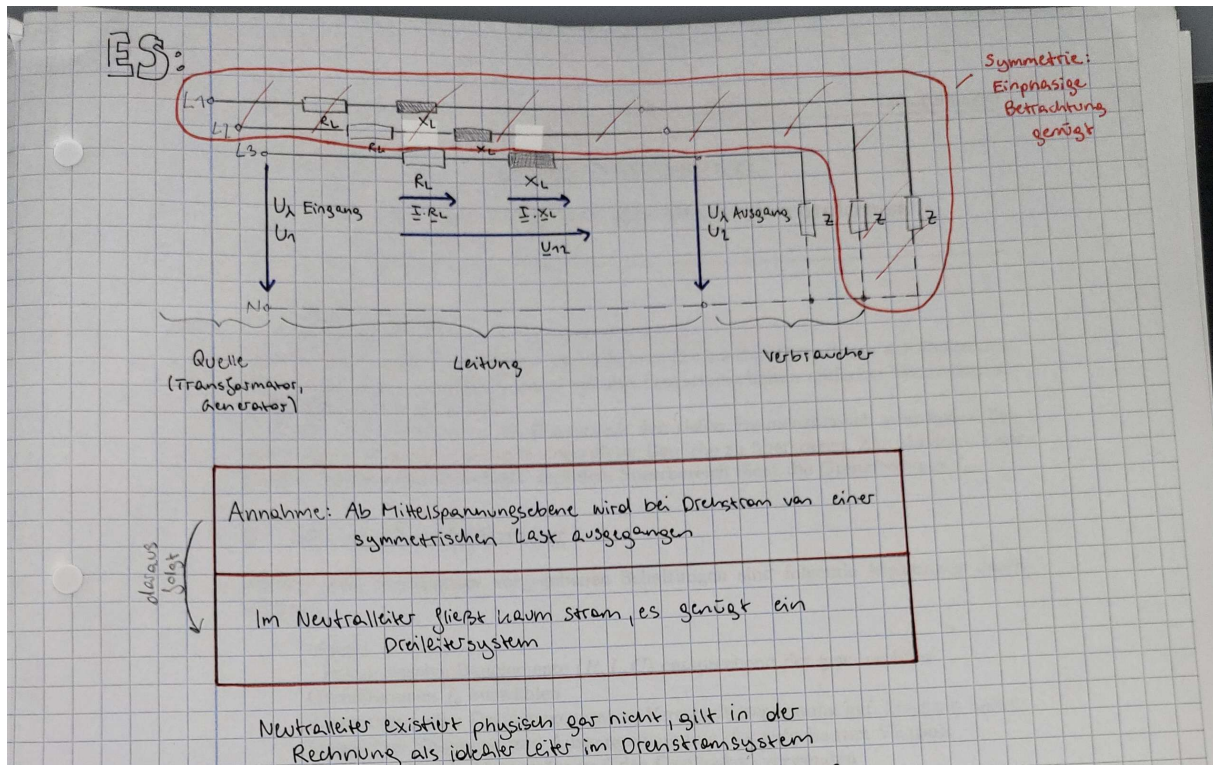 ES:
Symmetrie:
Einphasige
Betrachtung
genügt
L1
RL
XL
L2
RL
XL
L3
RL
XL
I·RL
I·XL
U12
Uλ Eingang
U1
Uλ Ausgang
U2
Z
Z
Z
N
Quelle
(Transformator,
Generator)
Leitung
Verbraucher
Annahme: Ab Mittelspannungsebene wird bei Drehstrom von einer
symmetrischen Last ausgegangen
daraus
folgt
Im Neutralleiter fließt kaum Strom, es genügt ein
Dreileitersystem
Neutralleiter existiert physisch gar nicht, gilt in der
Rechnung als idealer Leiter im Drehstromsystem